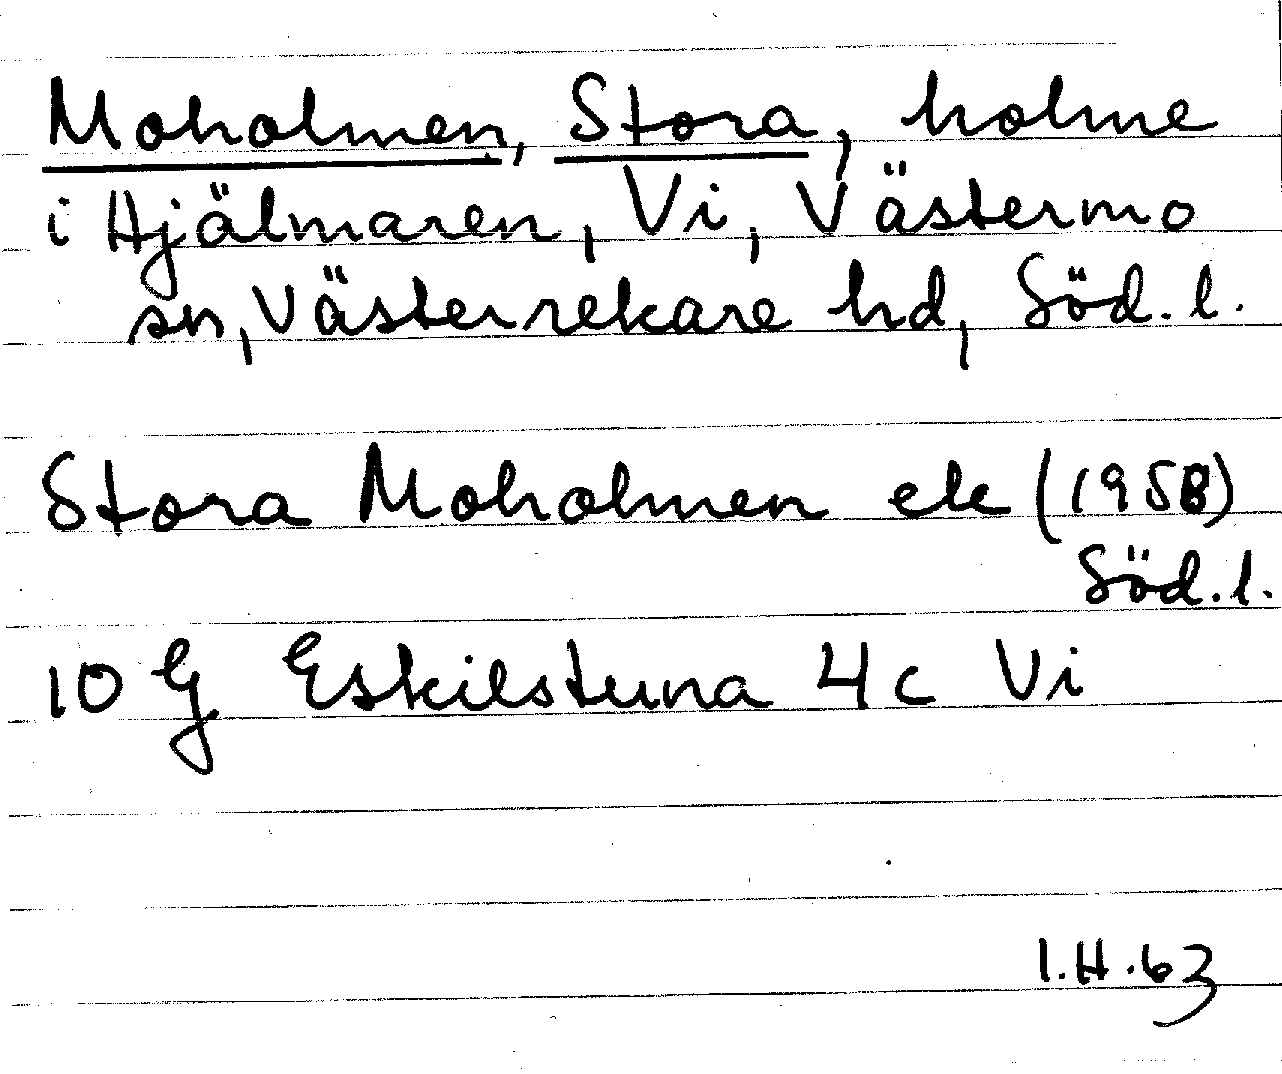 Moholmen, Stora, holme
i Hjälmaren, Vi, Västermo
sn, Västerrekare hd, Söd. l.
Stora Moholmen ek (1958)
Söd. l.
10 G Eskilstuna 4c Vi
I.H. 63